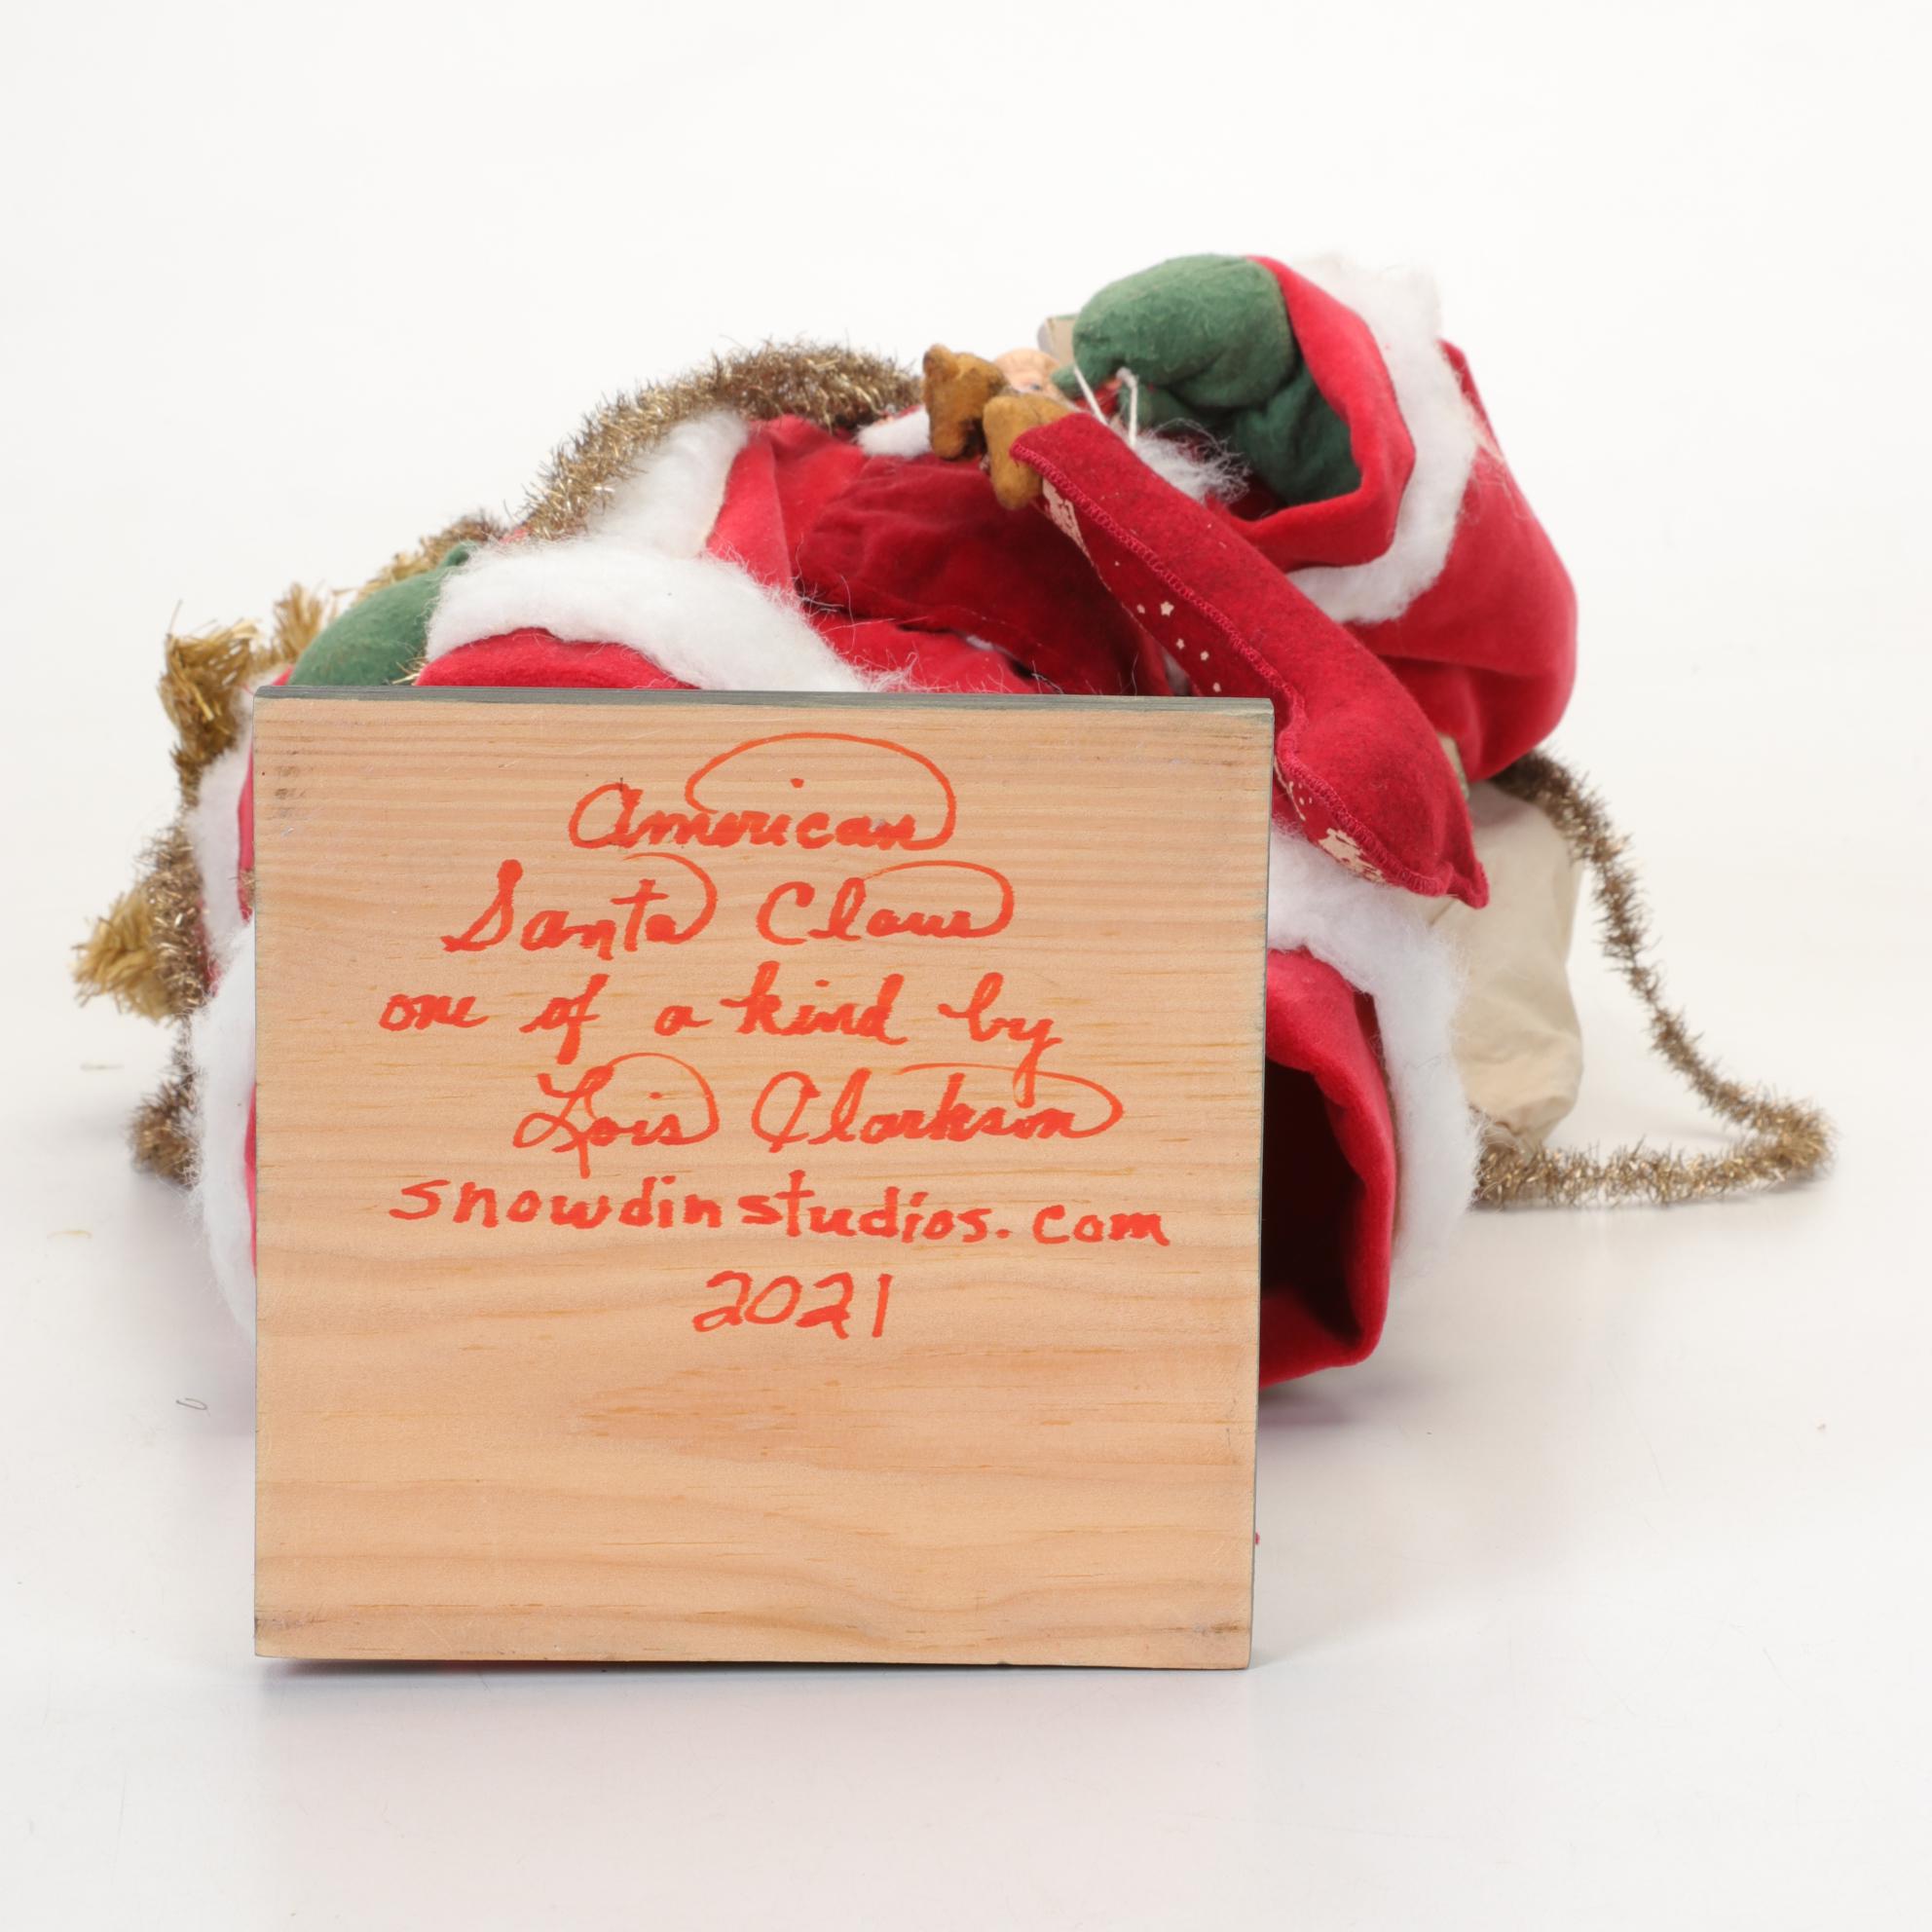 American
Santa Claus
one of a kind by
Lois Clarkson
snowdinstudios.com
2021